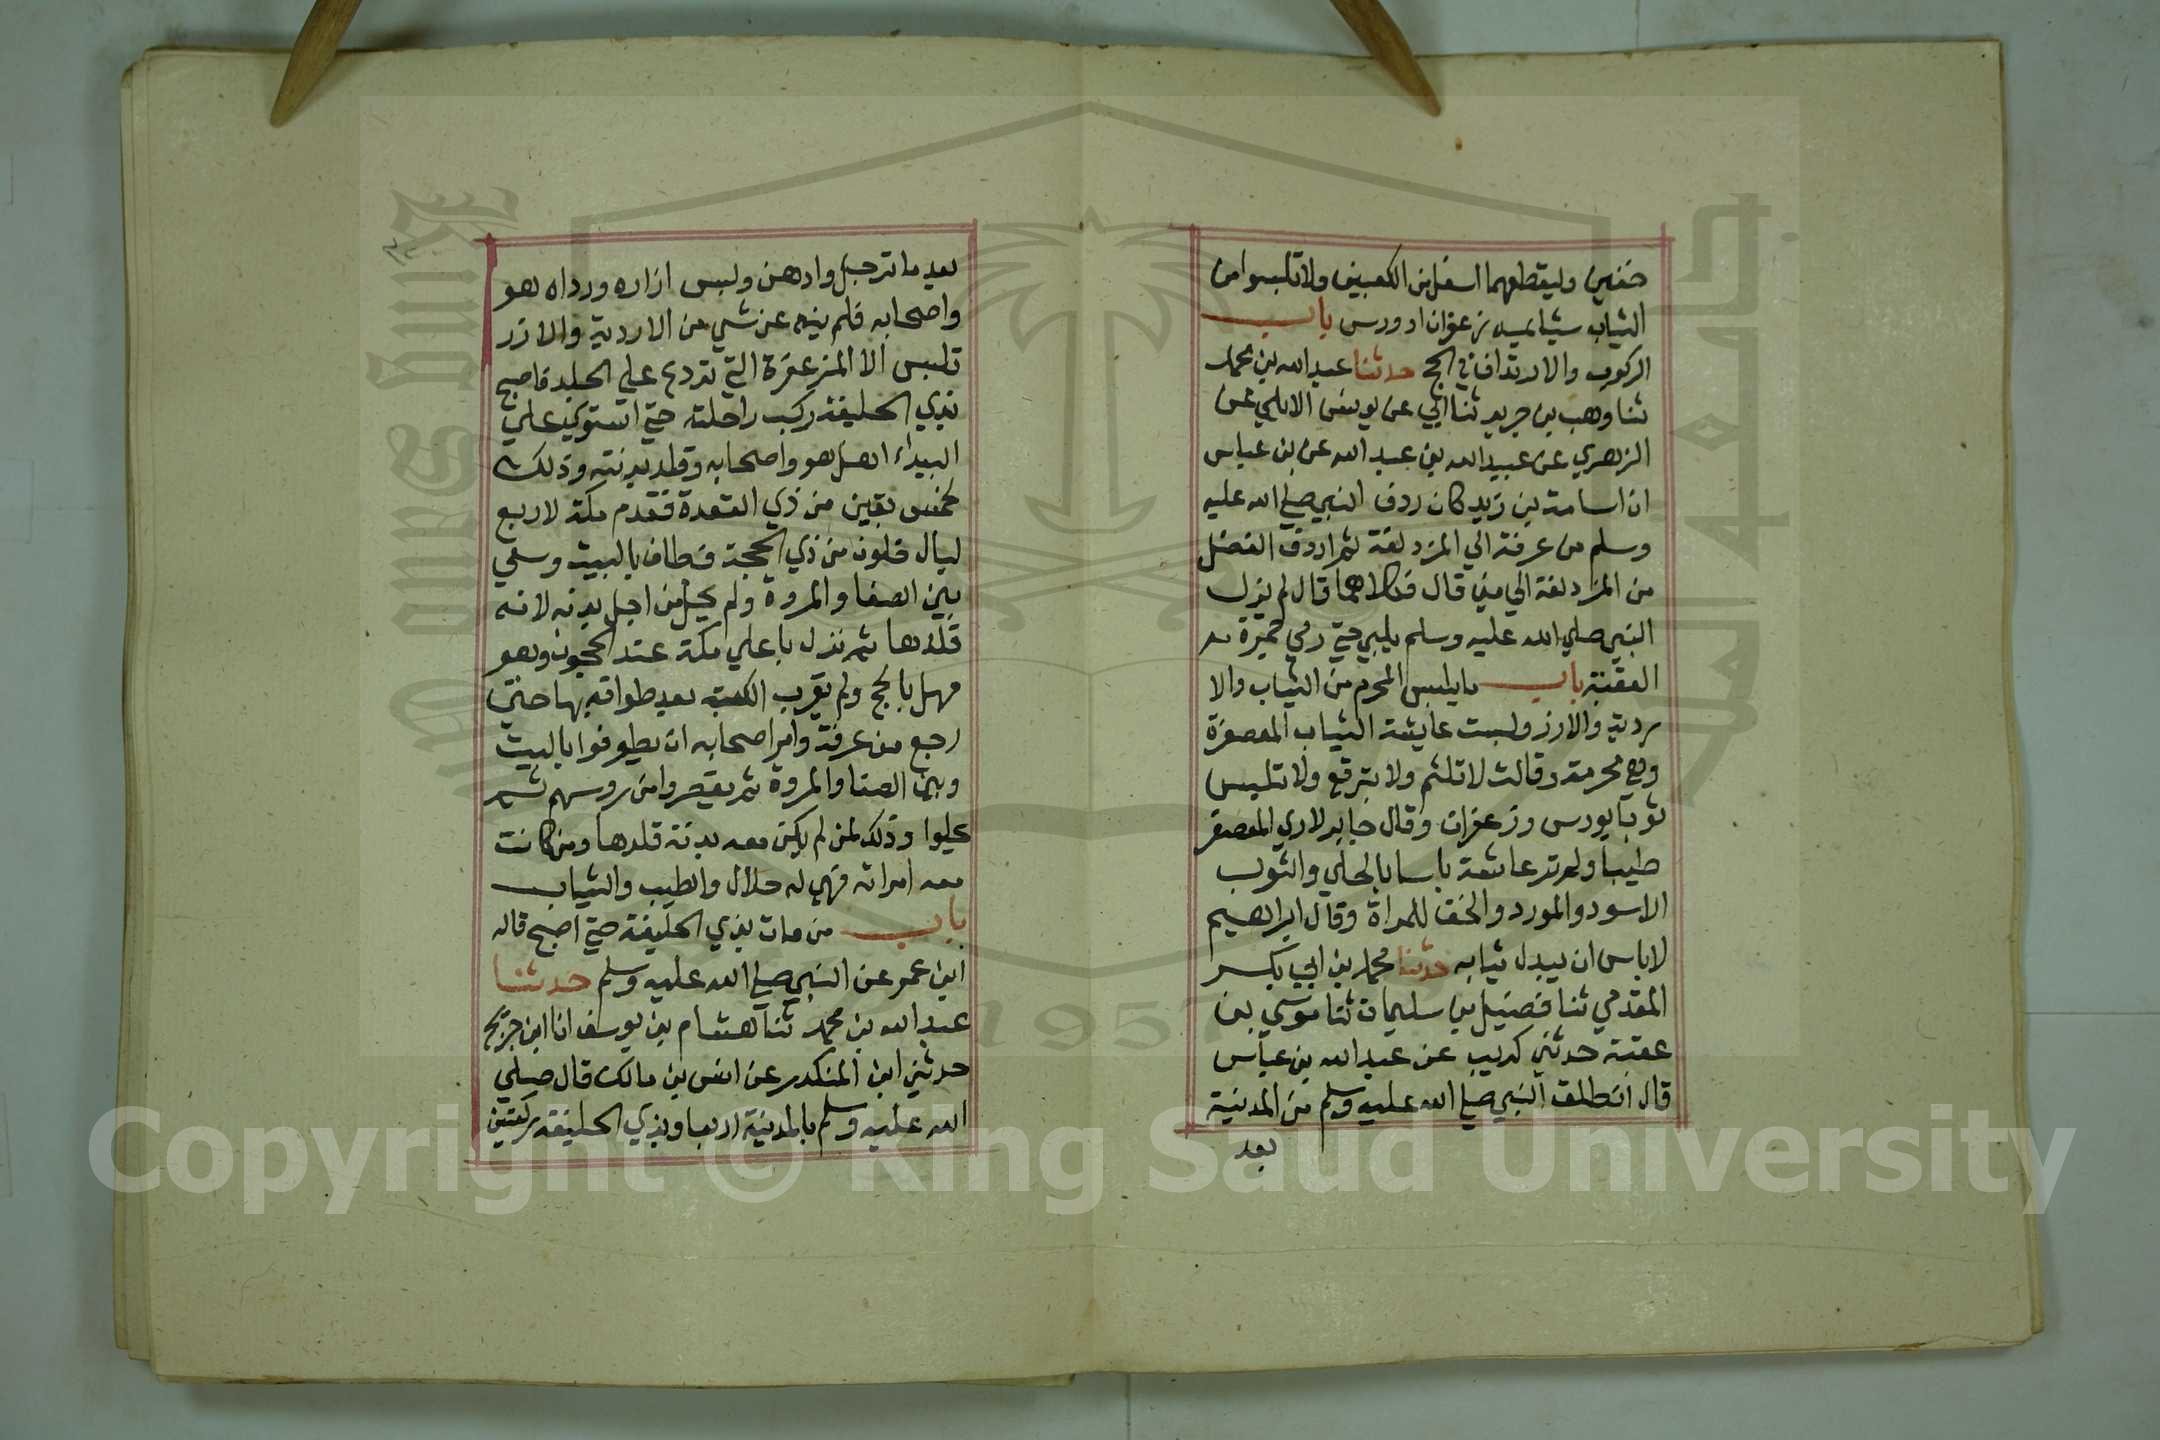 خفين وليقطعهما اسفل من الكعبين ولا تلبسوا من
الثياب شيا مسه زعفران او ورس باب
الركوب والارتداف في الحج حدثنا عبد الله بن محمد
ثنا وهب بن جرير ثنا ابي عن يونس الايلي عن
الزهري عن عبيد الله بن عبد الله عن بن عباس
ان اسامة بن زيد كان ردف النبي صلى الله عليه
وسلم من عرفة الي المزدلفة ثم اردف الفضل
من المزدلفة الي مني قال فكلاهما قال لم يزل
النبي صلي الله عليه وسلم يلبي حتي رمي جمرة
العقبة باب ما يلبس المحرم من الثياب والا
ردية والازر ولبست عايشة الثياب المعصفرة
وهي محرمة وقالت لا تلثم ولا تبرقع ولا تلبس
ثوبا بورس وزعفران وقال جابر لا اري المعصفر
طيبا ولم تر عائشة باسا بالحلي والثوب
الاسود والمورد والخف للمراة وقال ابراهيم
لا باس ان يبدل ثيابه حدثنا محمد بن ابي بكر
المقدمي ثنا فضيل بن سليمان ثنا موسي بن
عقبة حدثني كريب عن عبد الله بن عباس
قال انطلق النبي صلى الله عليه وسلم من المدينة
بعد
بعد ما ترجل وادهن ولبس ازاره ورداه هو
واصحابه فلم ينه عن شي من الاردية والازر
تلبس الا المزعفرة التي تردع علي الجلد فاصبح
بذي الحليفة ركب راحلته حتي استوي علي
البيداء اهل هو واصحابه وقلد بدنته وذلك
لخمس بقين من ذي القعدة فقدم مكة لاربع
ليال خلون من ذي الحجة فطاف بالبيت وسعي
بين الصفا والمروة ولم يحل من اجل بدنه لانه
قلدها ثم نزل باعلي مكة عند الحجون وهو
مهل بالحج ولم يقرب الكعبة بعد طوافه بها حتي
رجع من عرفة وامر اصحابه ان يطوفوا بالبيت
وبين الصفا والمروة ثم يقصروا من روسهم ثم
يحلوا وذلك لمن لم يكن معه بدنة قلدها ومن كانت
معه امراته فهي له حلال والطيب والثياب
باب من بات بذي الحليفة حتي اصبح قاله
ابن عمر عن النبي صلى الله عليه وسلم حدثنا
عبد الله بن محمد ثنا هشام بن يوسف انا ابن جريج
حدثني ابن المنكدر عن انس بن مالك قال صلي
الله عليه وسلم بالمدينة اربعا وبذي الحليفة ركعتين
1957
Copyright © King Saud University